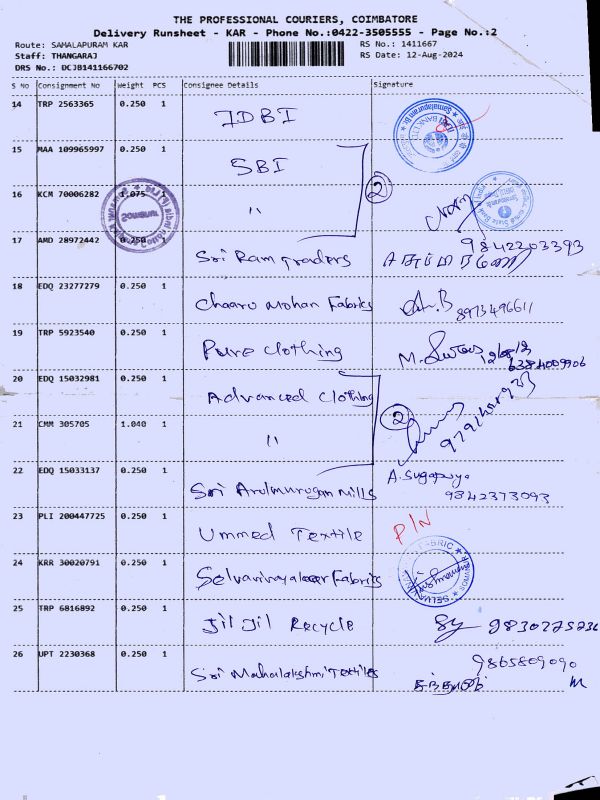 THE PROFESSIONAL COURIERS, COIMBATORE
Delivery Runsheet - KAR - Phone No.:0422-3505555 - Page No.:2
Route: SAMALAPURAM KAR RS No.: 1411667
Staff: THANGARAJ RS Date: 12-Aug-2024
DRS No.: DCJB141166702
S No Consignment No Weight PCS Consignee Details Signature
14 TRP 2563365 0.250 1 IDBI
15 MAA 109965997 0.250 1 SBI
16 KCM 70006282 1.075 1 " 2
17 AMD 28972442 0.250 1 Sri Ram traders 9842203393
18 EDQ 23277279 0.250 1 Chaaru Mohan Fabrics 8973496611
19 TRP 5923540 0.250 1 Pure clothing M. 12/08/2 6384009906
20 EDQ 15032981 0.250 1 Advanced Clothing
21 CMM 305705 1.040 1 " 2
22 EDQ 15033137 0.250 1 Sri Arulmurugan mills A. Sugapriya 9842373093
23 PLI 200447725 0.250 1 Ummed Textile P/N
24 KRR 30020791 0.250 1 Selvavinayakaar Fabrics
25 TRP 6816892 0.250 1 Jil Jil Recycle
26 UPT 2230368 0.250 1 Sri Mahalakshmi Textiles 9865809090